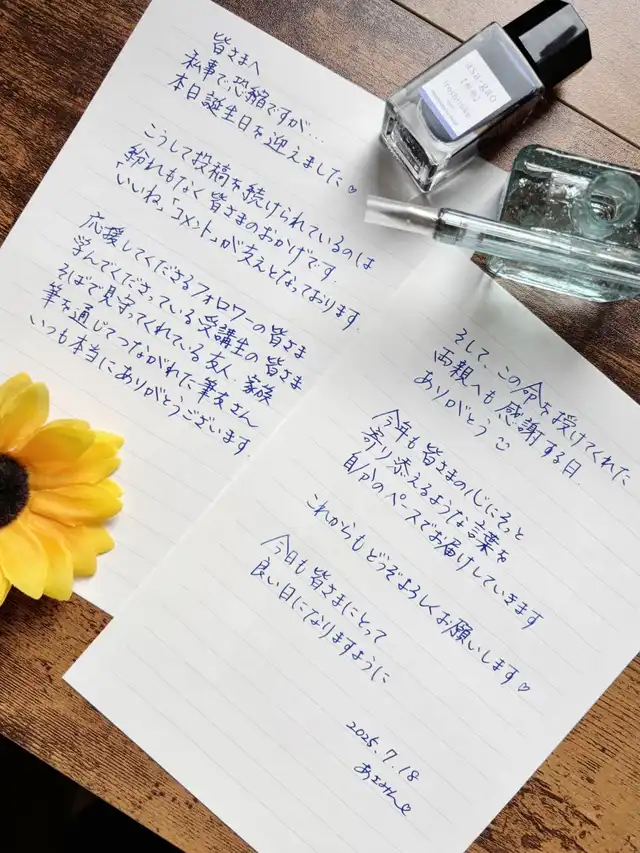 皆さまへ
私事で恐縮ですが…
本日誕生日を迎えました♡
こうして投稿を続けられているのは
紛れもなく皆さまのおかげです.
「いいね」「コメント」が支えとなっております.
応援してくださるフォロワーの皆さま
学んでくださっている受講生の皆さま
そばで見守ってくれている友人、家族
筆を通じてつながれた筆友さん
いつも本当にありがとうございます
そして、この命を授けてくれた
両親へも感謝する日.
ありがとう
今年も皆さまの心にそっと
寄り添えるような言葉を
自分のペースでお届けしていきます
これからもどうぞよろしくお願いします♡
今日も皆さまにとって
良い日になりますように
2025.7.18
asa-gao
[朝顔]